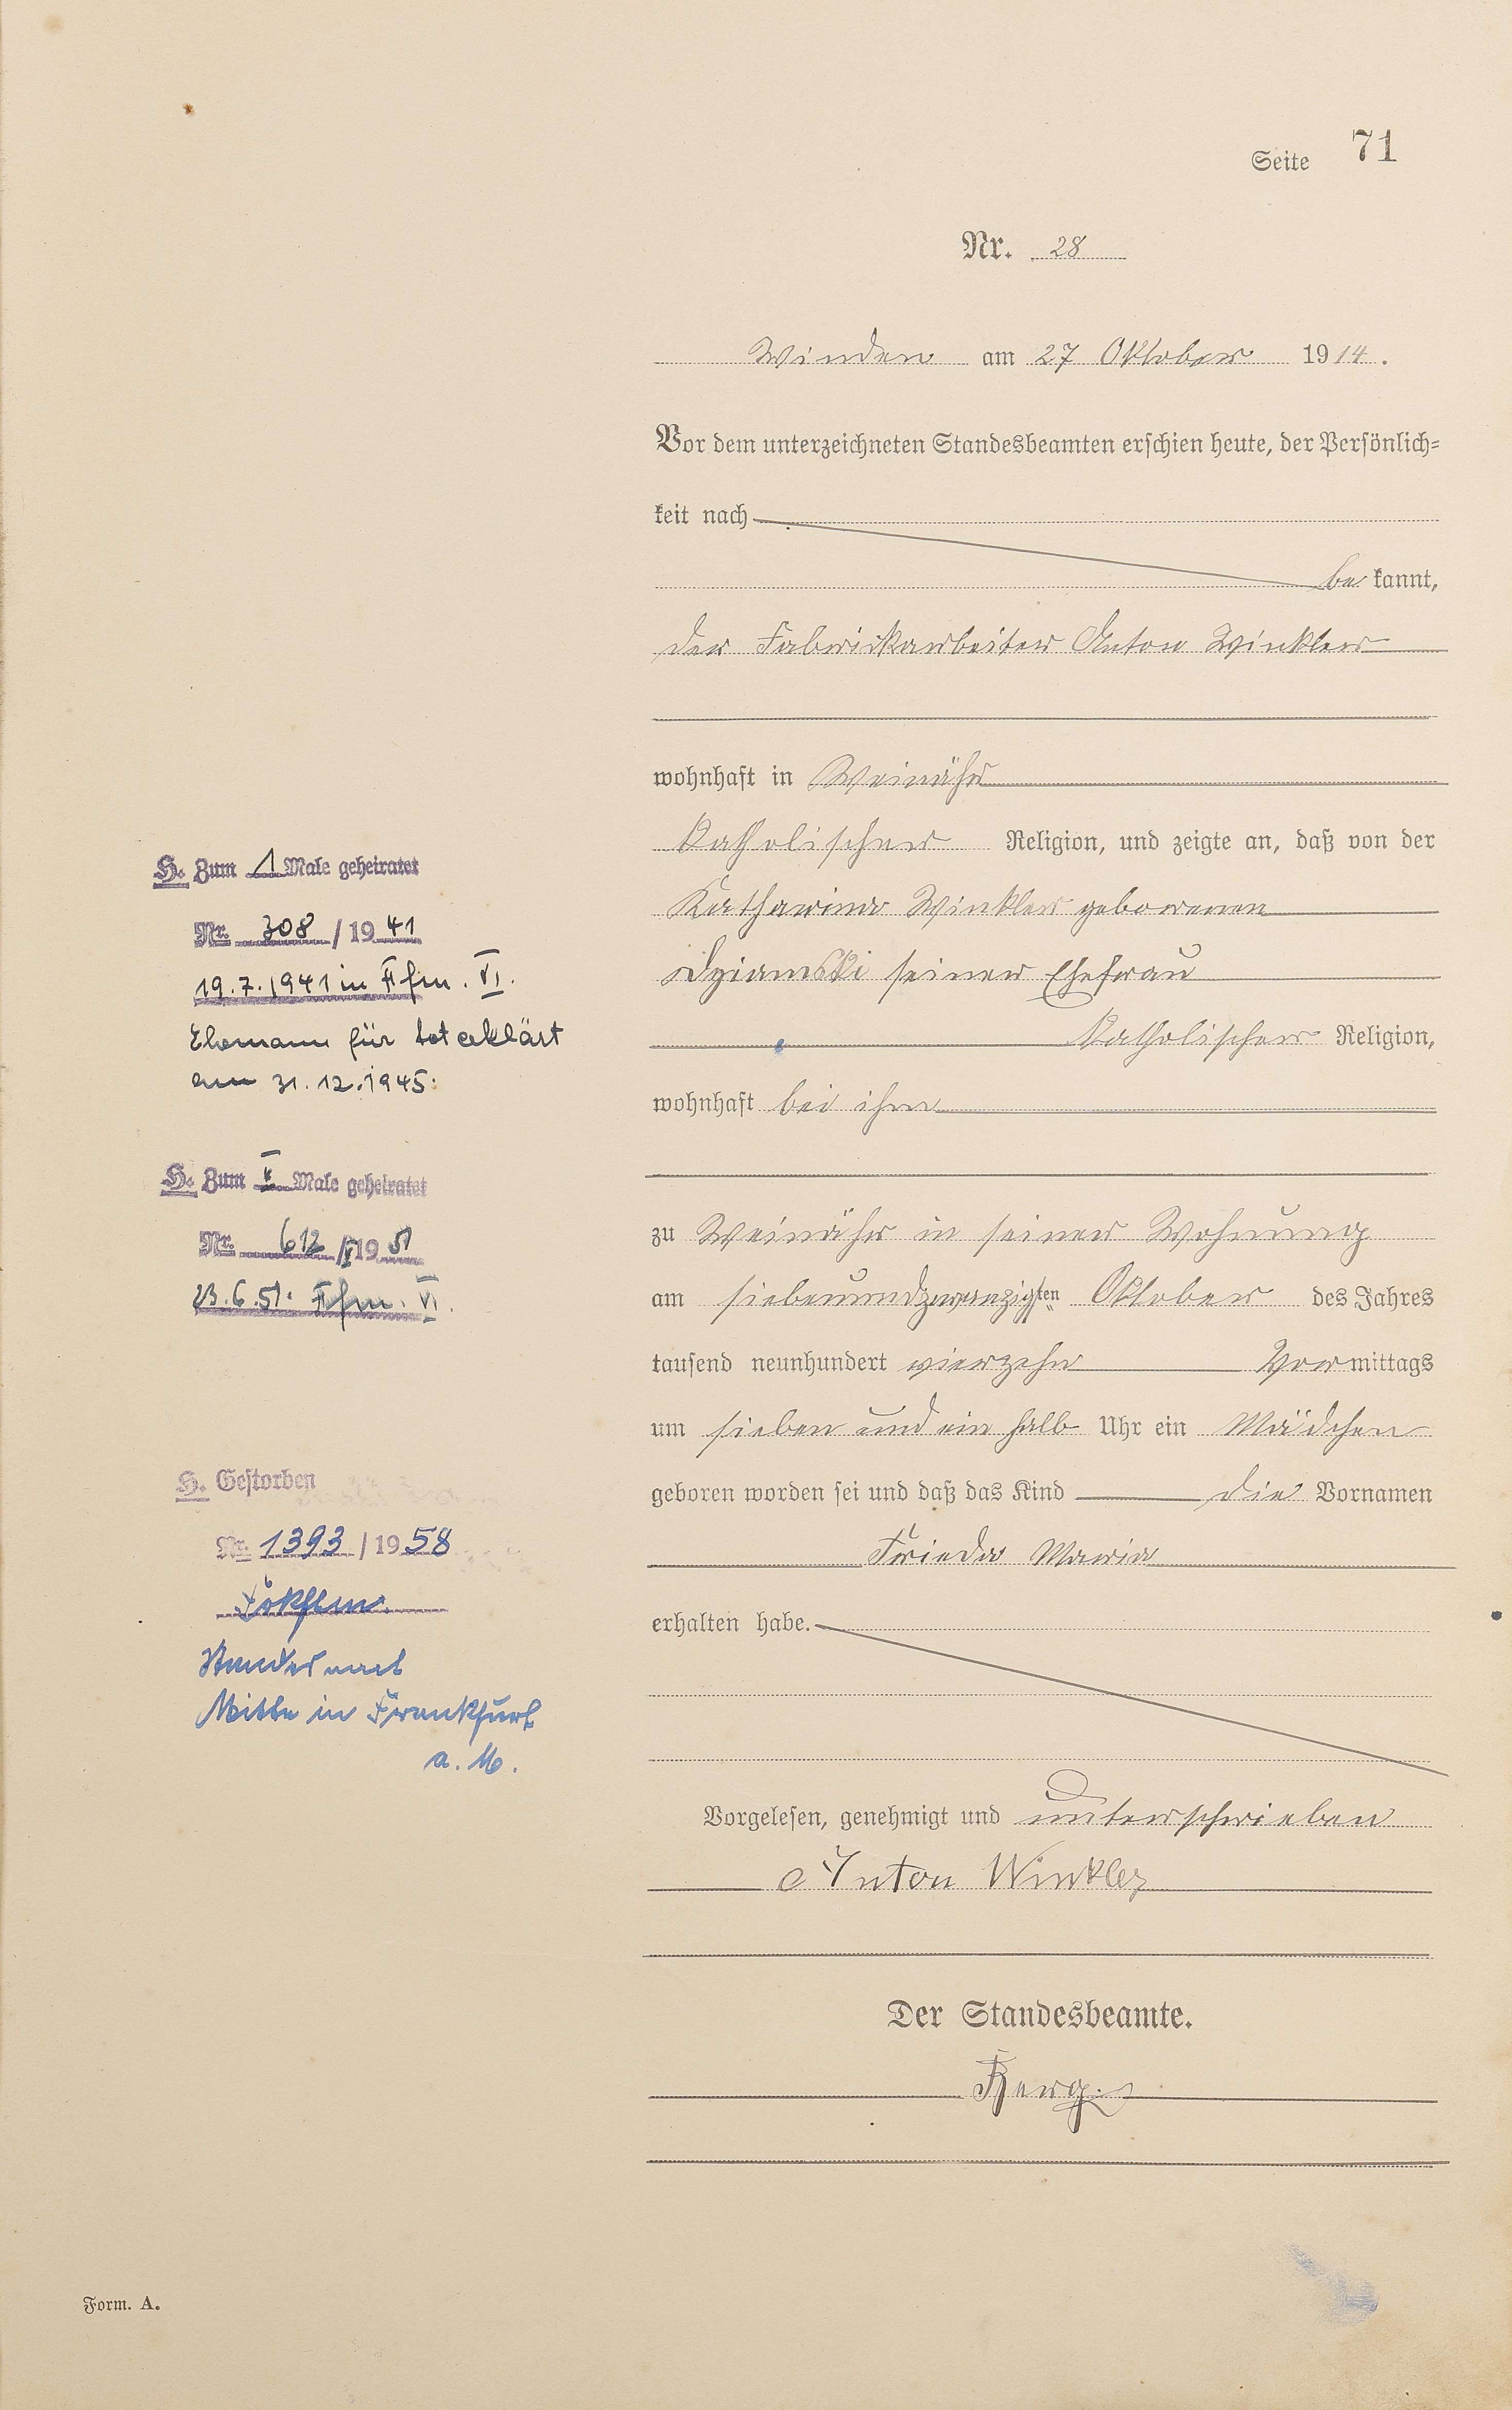 Seite 71
Nr. 28
Winden am 27 Oktober 1914.
Vor dem unterzeichneten Standesbeamten erschien heute, der Persönlich-
keit nach
be kannt,
der Fabrickarbeiter Anton Winkler
wohnhaft in Weinähr
katholischer Religion, und zeigte an, daß von der
Katharina Winkler geborenen
Dziamski seiner Ehefrau
katholischer Religion,
wohnhaft bei ihm
zu Weinähr in seiner Wohnung
am siebenundzwanzigsten Oktober des Jahres
tausend neunhundert vierzehn Vormittags
um sieben und ein halb Uhr ein Mädchen
geboren worden sei und daß das Kind die Vornamen
Frieda Maria
erhalten habe.
Vorgelesen, genehmigt und unterschrieben
Anton Winkler
Der Standesbeamte.
Berg
H. Zum 1 Male geheiratet
Nr. 308 / 1941
19.7.1941 in Ffm. VI.
Ehemann für tot erklärt
am 31.12.1945.
H. Zum II Male geheiratet
Nr. 612 / 1951
23.6.51. Ffm. VI.
H. Gestorben
Nr. 1393 / 1958
Standesamt
Mitte in Frankfurt
a. M.
Form. A.